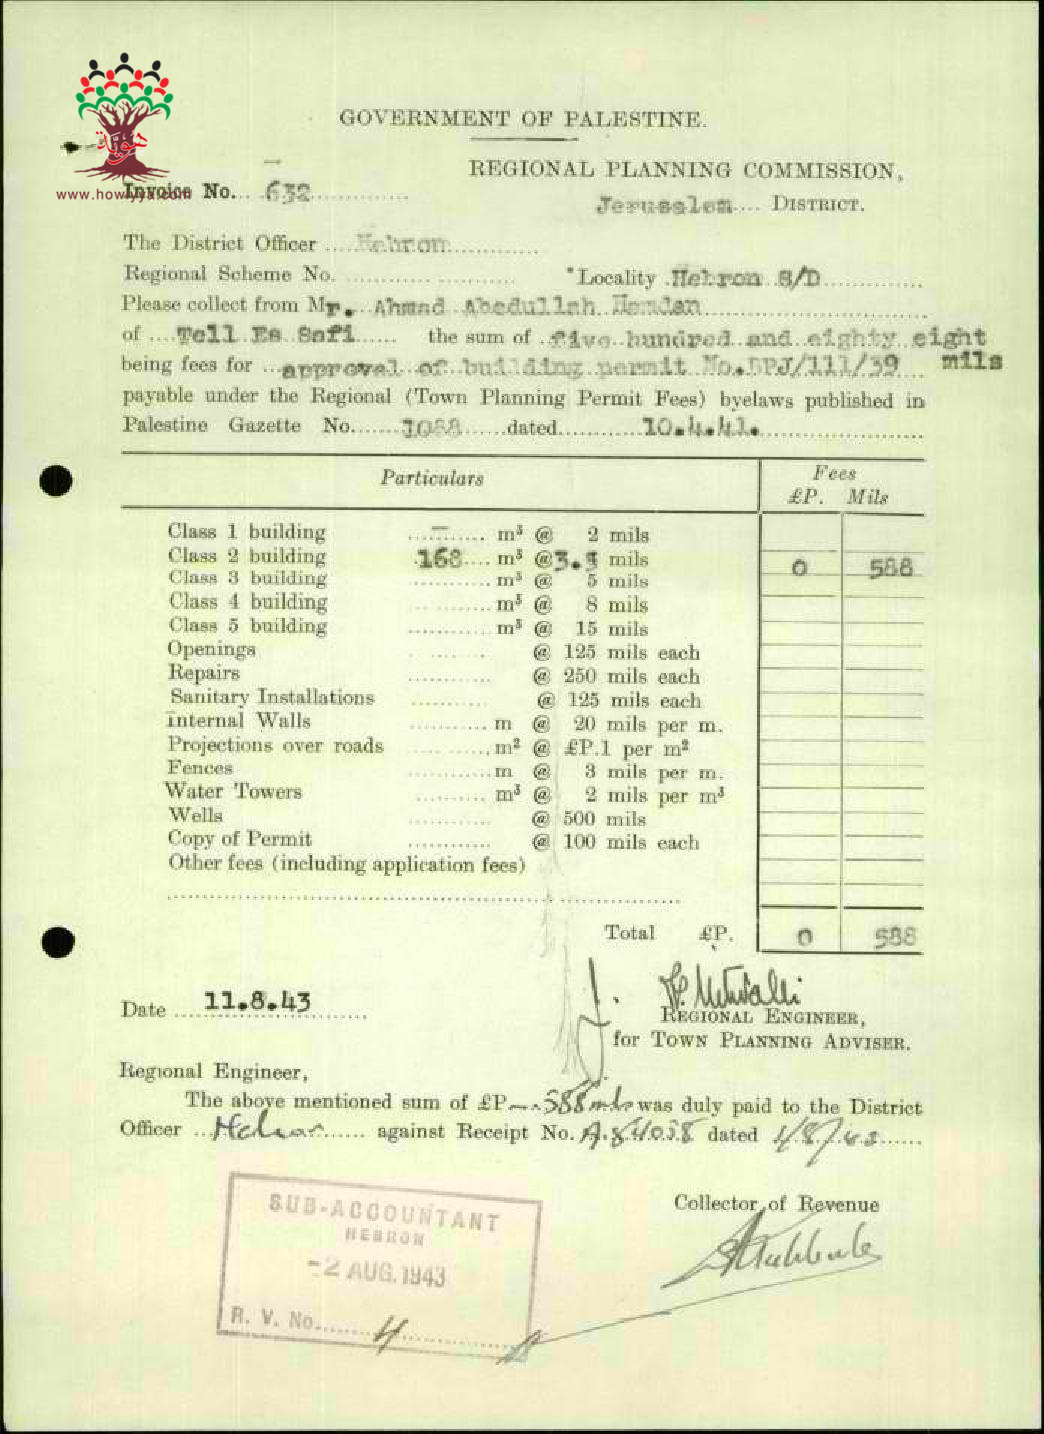 هوية
www.howiyya.com
GOVERNMENT OF PALESTINE.
REGIONAL PLANNING COMMISSION,
Invoice No. 632
Jerusalem DISTRICT.
The District Officer Hebron
Regional Scheme No. *Locality Hebron S/D
Please collect from Mr. Ahmad Abedullah Hamdan
of Tell Es Safi the sum of five hundred and eighty eight
being fees for approval of building permit No.BPJ/111/39 mils
payable under the Regional (Town Planning Permit Fees) byelaws published in
Palestine Gazette No. 1088 dated 10.4.41.
Particulars Fees
£P. Mils
Class 1 building – m³ @ 2 mils
Class 2 building 168 m³ @ 3.5 mils 0 588
Class 3 building m³ @ 5 mils
Class 4 building m³ @ 8 mils
Class 5 building m³ @ 15 mils
Openings @ 125 mils each
Repairs @ 250 mils each
Sanitary Installations @ 125 mils each
Internal Walls m @ 20 mils per m.
Projections over roads m² @ £P.1 per m²
Fences m @ 3 mils per m.
Water Towers m³ @ 2 mils per m³
Wells @ 500 mils
Copy of Permit @ 100 mils each
Other fees (including application fees)
Total £P. 0 588
Date 11.8.43
REGIONAL ENGINEER,
for TOWN PLANNING ADVISER.
Regional Engineer,
The above mentioned sum of £P –.588 mils was duly paid to the District
Officer Hebron against Receipt No. A.84038 dated 1/8/43
Collector of Revenue
SUB-ACCOUNTANT
HEBRON
-2 AUG. 1943
R. V. No. 4